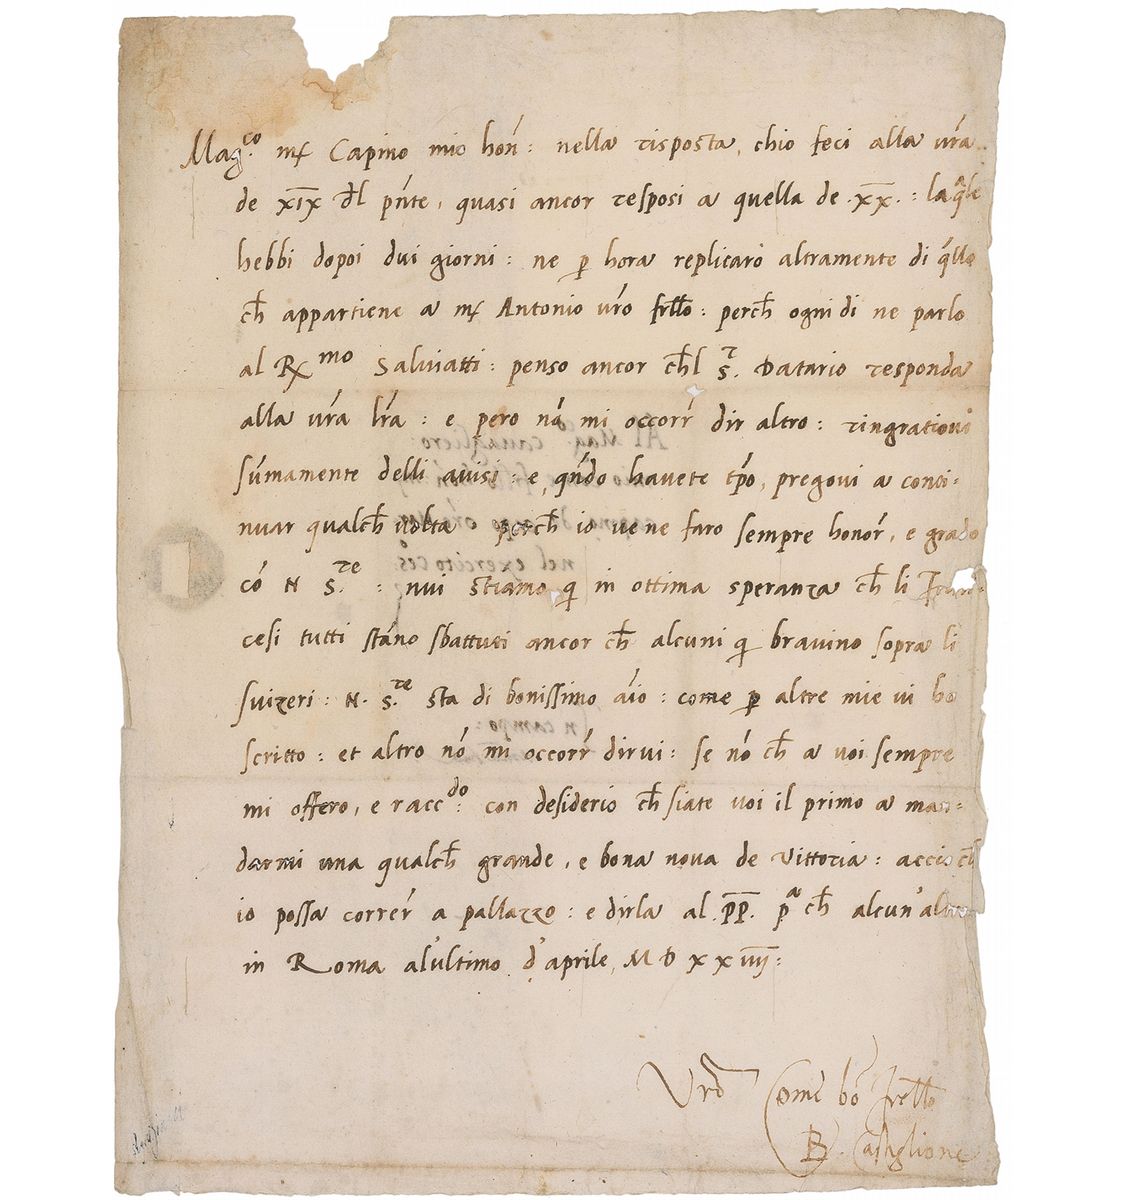 Mag.co mr Capino mio hon: nella risposta, chio feci alla vra
de XIX dl pnte, quasi ancor resposi a quella de .XX.: la qle
hebbi dopoi dui giorni: ne p hora replicaro altramente di qllo
ch appartiene a mr Antonio vro frllo: perch ogni di ne parlo
al Rmo Salviatti: penso ancor chl S.r Datario responda
alla vra lra: e pero nō mi occorr dir altro: ringratiovi
sūmamente delli avisi: e qndo havete tpo, pregovi a conti-
nuar qualch volta perch io ve ne faro sempre honor, e grado
cō N S.re: nui stiamo qi in ottima speranza ch li Fran-
cesi tutti stāno sbattuti ancor ch alcuni qi bravino sopra li
svizeri: N. S.re sta di bonissimo aīo: come p altre mie vi ho
scritto: et altro nō mi occorr dirvi: se nō ch a voi sempre
mi offero, e racc.do: con desiderio ch siate voi il primo a man-
darmi una qualch grande, e bona nova de vittoria: accio ch
io possa correr a pallazzo: e dirla al .PP. pa ch alcun'altro
in Roma alultimo d'aprile, MDXXIIIJ:
Vro Come bō frello
B. Castiglione
Al Mag.co cavagliero:
nel exercito ces.o
In campo: